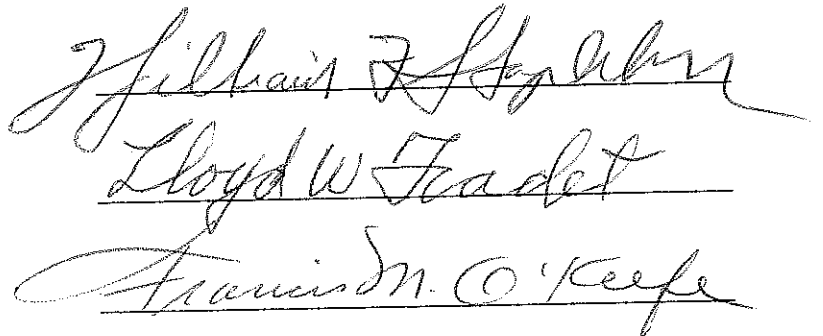 William F Stapleton
Lloyd W Fradet
Francis M. O'Keefe